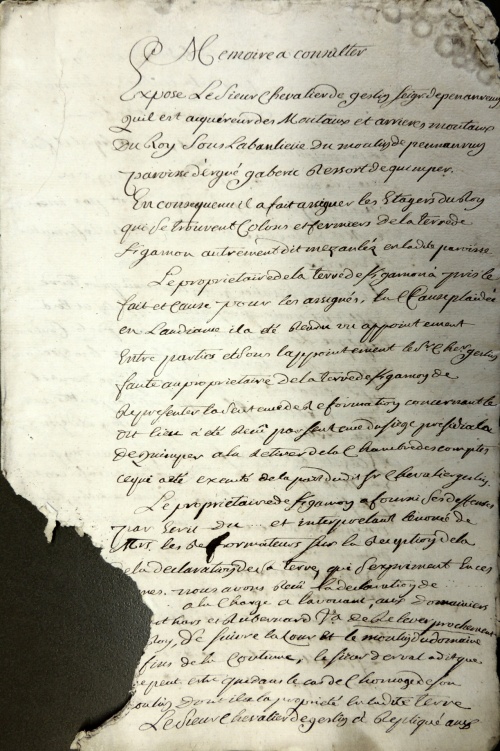 Memoire a consulter
Expose Le Sieur Chevalier de geslin seigr de penanrun
quil est aquereur des Moutaux et arrieres moutaux
Du Roy sous La banlieue Du moulin de pennanrun
paroisse d'ergué gaberic Ressort de quimper.
En consequence il a fait assigner les Etagers du Roy
que se trouvent Colons et fermiers de la terre de
autrement dit en la dite paroisse
Le proprietaire de la terre de a pris le
fait et Cause pour les assignés, la Cause plaidée
en Laudiance il a été Rendu un appointement
Entre parties et sous lappointement le Sr Cher geslin
faute au proprietaire de la terre de de
Representer la Sentence de Reformation concernant le
dit lieu a été Recu par sentence du siege presidial
de quimper a la Retirer de la Chambre des comptes
ce qui a été executé de la part du dit Sr Chevalier geslin.
Le proprietaire de a fourni ses deffenses
par Ecrit du et interpretant de
les Reformateurs sur la Reception de la
de la declaration de sa terre, qui s'expriment en ces
nous avons Recu la declaration de
a la Charge a lavouant, aux Domainiers
et hors et de Relever prochement
Roy, De suivre la Cour et le moulin du domaine
fins de la Coutume, le sieur derval a dit que
peut estre que dans le cas de Chomage de son
moulin dont il a la propriété en la dite terre
Le Sieur Chevalier de geslin a Repliqué aux